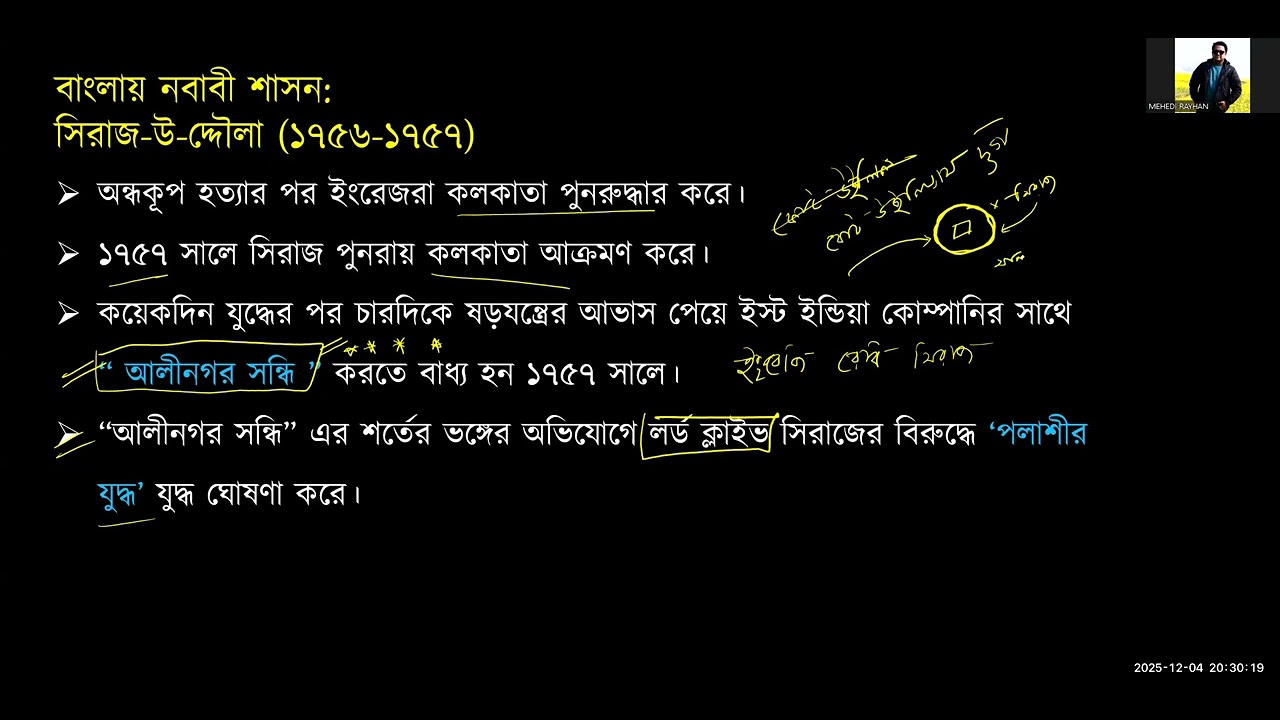 বাংলায় নবাবী শাসন:
সিরাজ-উ-দ্দৌলা (১৭৫৬-১৭৫৭)
➤ অন্ধকূপ হত্যার পর ইংরেজরা কলকাতা পুনরুদ্ধার করে।
➤ ১৭৫৭ সালে সিরাজ পুনরায় কলকাতা আক্রমণ করে।
➤ কয়েকদিন যুদ্ধের পর চারদিকে ষড়যন্ত্রের আভাস পেয়ে ইস্ট ইন্ডিয়া কোম্পানির সাথে
“ আলীনগর সন্ধি ” করতে বাধ্য হন ১৭৫৭ সালে।
➤ “আলীনগর সন্ধি” এর শর্তের ভঙ্গের অভিযোগে লর্ড ক্লাইভ সিরাজের বিরুদ্ধে ‘পলাশীর
যুদ্ধ’ যুদ্ধ ঘোষণা করে।
MEHEDI RAYHAN
2025-12-04 20:30:19